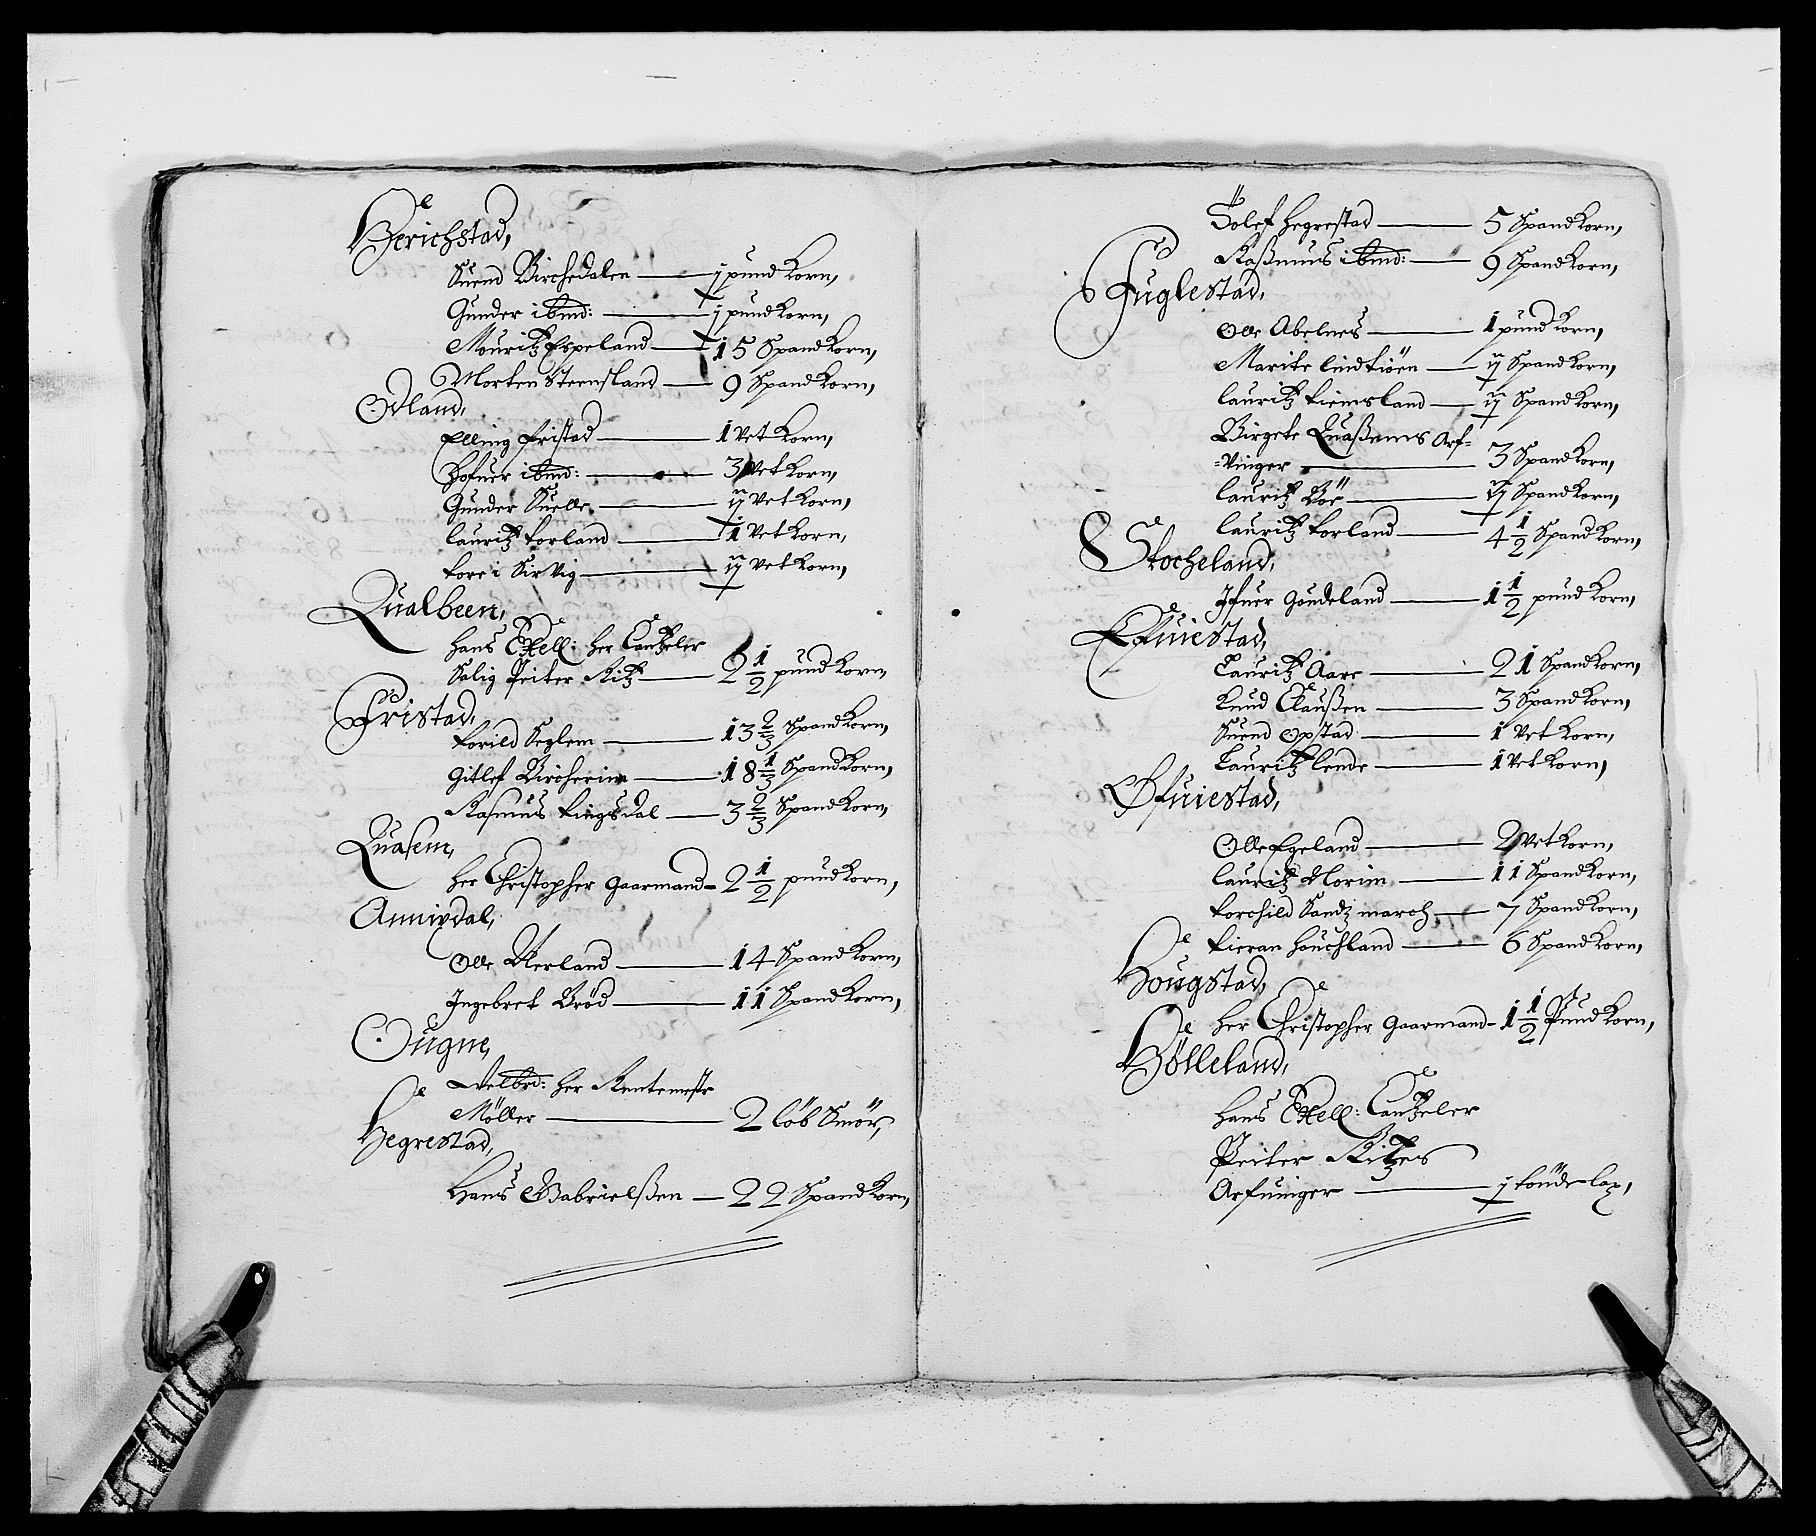 Berichstad,
Suend Birchedalen — j pund Korn,
Gunder ibmd: — j pund Korn,
Mouritz Espeland — 15 Spand Korn,
Morten Steensland — 9 Spand Korn,
Odland,
Elling Fristad — 1 Vet Korn,
Hofuer ibmd: — 3 Vet Korn,
Gunder Suelle — ij Vet Korn,
Lauritz Torland — 1 Vet Korn,
Tore i Sirvig — ij Vet Korn,
Qualbeen,
Hans Exell: Her Cantzeler
Salig Peiter Ritz — 2 1/2 pund Korn,
Fristad,
Torild Seglem — 13 2/3 Spand Korn,
Gitlef Bircherim — 18 1/3 Spand Korn,
Rasmus Tingsdal — 3 2/3 Spand Korn,
Quasem,
Her Christopher Gaarmand — 2 1/2 pund Korn,
Annivdal,
Olle Nerland — 14 Spand Korn,
Ingebret Brød — 11 Spand Korn,
Ougne,
Velbrd: Her Rentemestr
Møller — 2 løb Smør,
Hegrestad,
Hans Gabrielßen — 22 Spand Korn,
Tolef Hegrestad — 5 Spand Korn,
Raßmus ibmd: — 9 Spand Korn,
Fuglestad,
Olle Abelnes — 1 pund Korn,
Marite Lindtiøen — ij Spand Korn,
Lauritz Tiemsland — ij Spand Korn,
Birgete Quaßems Arf=
=vinger — 3 Spand Korn,
Lauritz Bøe — ij Spand Korn,
Lauritz Torland — 4 1/2 Spand Korn,
Stocheland,
Ifuer Goudeland — 1 1/2 pund Korn,
Efuiestad,
Lauritz Aare — 21 Spand Korn,
Knud Claußen — 3 Spand Korn,
Suend Opstad — 1 Vet Korn,
Lauritz Lende — 1 Vet Korn,
Øfuiestad,
Olle Egeland — 2 Vet Korn,
Lauritz Norim — 11 Spand Korn,
Torchild Sandtz march — 7 Spand Korn,
Tieran Houchland — 6 Spand Korn,
Hougstad,
Her Christopher Gaarmand — 1 1/2 Pund Korn,
Hølleland,
Hans Exell: Cantzeler
Peiter Ritzes
Arfuinger — j tønde lax,